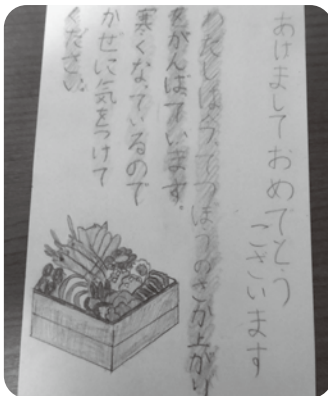 あけましておめでとう
ございます
わたしは今、てつぼうのさか上がり
をがんばています。
寒くなっているので
かぜに気をつけて
ください。